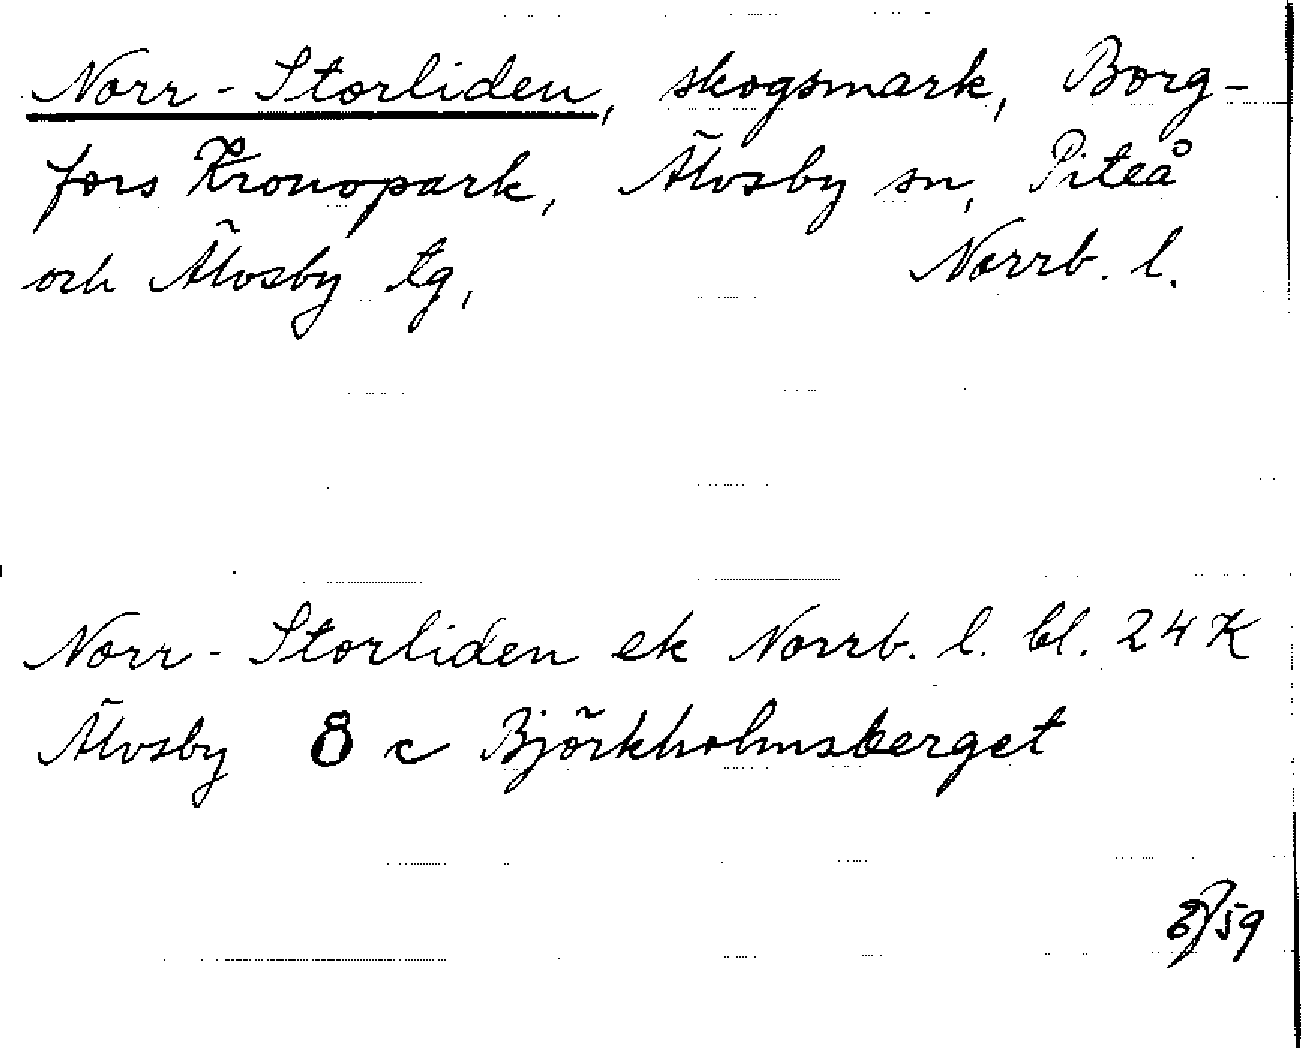 Norr-Storliden, skogsmark, Borg-
fors Kronopark, Älvsby sn, Piteå
och Älvsby tg, Norrb. l.
Norr-Storliden ek Norrb. l. bl. 24 K
Älvsby 8 c Björkholmsberget
59